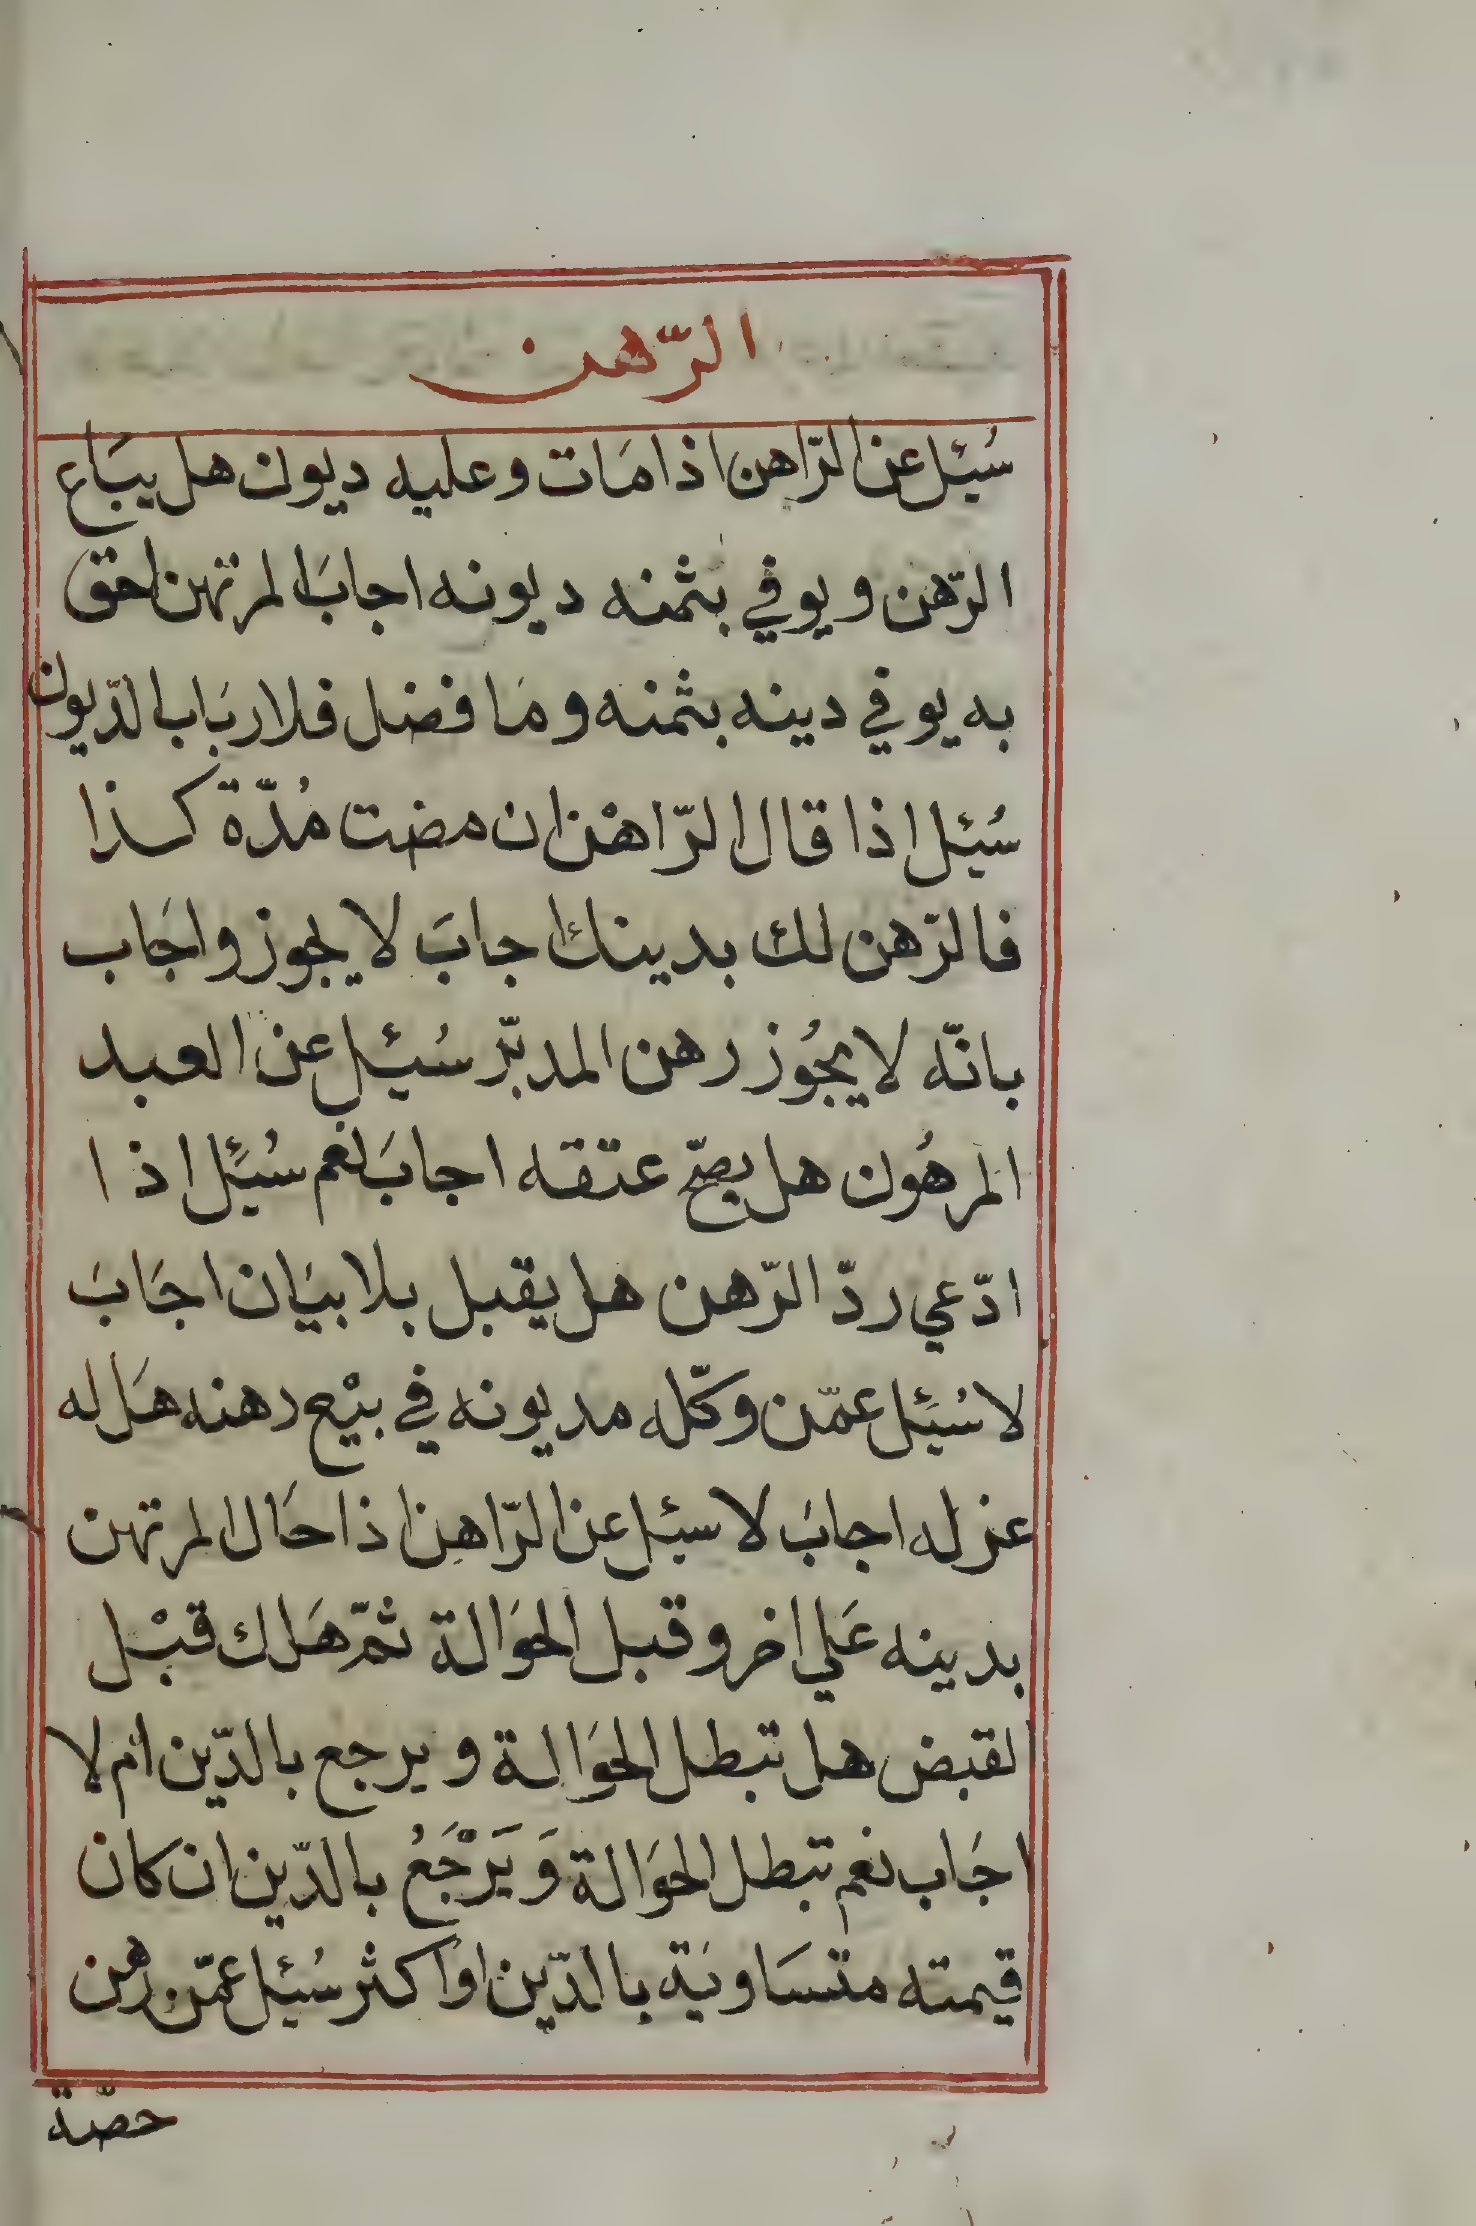 الرّهن
سُئِل عن الرّاهن اذا مَات وعليه ديون هل يبَاع
الرّهن ويوفي بثمنه ديونه اجابَ المرتهن احق
به يوفي دينه بثمنه ومَا فضل فلاربَاب الدّيون
سُئِل اذا قال الرّاهْن ان مضت مُدّة كذا
فالرّهن لك بدينك اجابَ لا يجوز واجَاب
بانّه لا يجُوز رهن المدبّر سُئِل عن العبد
المرهُون هل يصحّ عتقه اجابَ نعم سُئِل اذا
ادّعي ردّ الرّهن هل يقبل بلا بيَان اجَابَ
لا سُئِل عمّن وكّله مديونه في بيْع رهنه هَل له
عزله اجابَ لا سئِل عن الرّاهِن اذا حَال المرتهن
بدينه عَلي اخر وقبل الحوَالة ثمّ هَلك قبْل
لقبض هل تبطل الحوَالة ويرجع بالدّين أم لا
اجَاب نعم تبطل الحوَالة وَيَرْجَعُ بالدّين ان كان
قيمته متسَاويَة بالدّين اوْ اكثر سُئِل عمّن رهن
حصّة